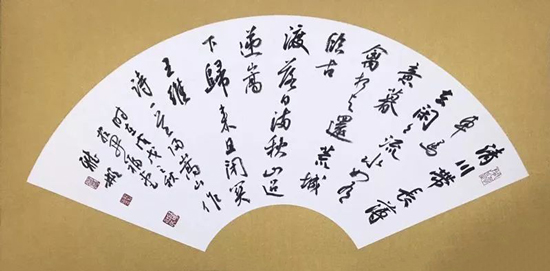 清川带长薄
车马
去闲闲流水如有
意暮
禽相与还荒城
临古
渡落日满秋山迢
递嵩
下归来且闭关
王维
诗一首归嵩山作
时在戊戌之秋